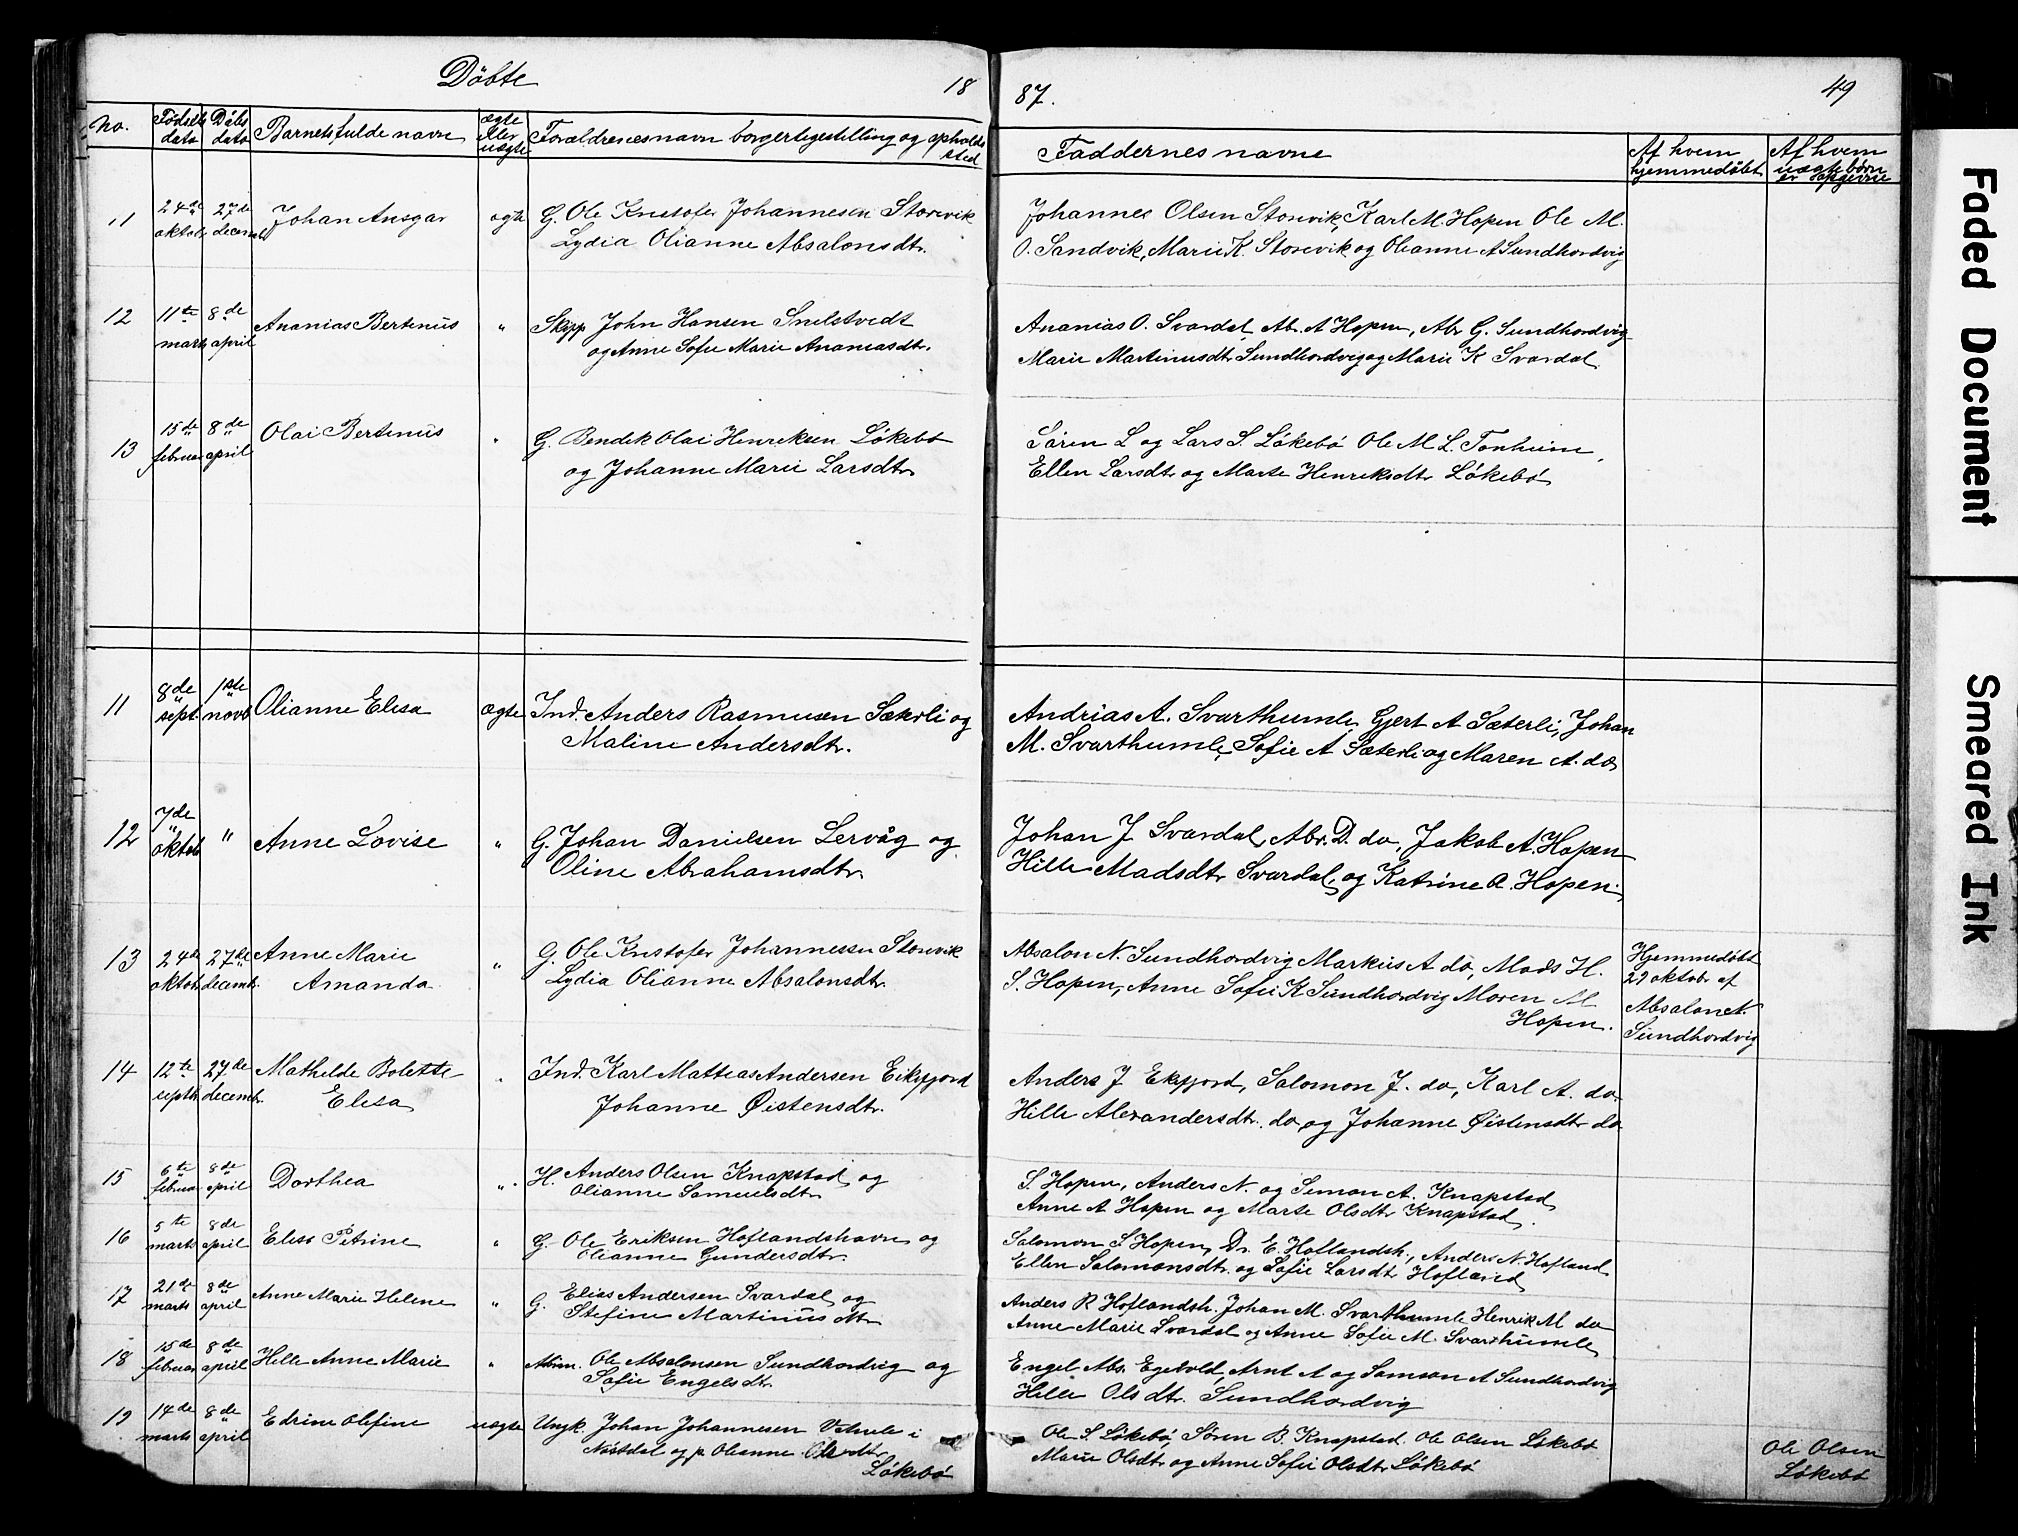 Döbte 18 87. 49
No. Födsels dato Döbs dato Barnets fulde navn ægte eller uægte Forældrenes navn borgerlige stilling og opholdssted Faddernes navne Af hvem hjemmedöbt Af hvem uægte börn er opgivne
11 24de oktob 27de decemb Johan Ansgar ægte G. Ole Kristofer Johannesen Storevik
Lydia Olianne Absalonsdtr.
Johannes Olsen Storevik, Karl M. Hopen Ole M.
O. Sandvik, Marie K. Storevik og Olianne A Sundhordvig
12 11te marts 8de april Ananias Bertinus " Skipp John Hansen Snilstvedt
og Anne Sofie Marie Ananiasdtr.
Ananias O. Svardal, Ab. A Hopen, Abr G. Sundhordvig
Marie Martinusdtr Sundhordvig og Marie K Svardal
13 15de februar 8de april Olai Bertinus " G. Bendik Olai Henriksen Lökebö
og Johanne Marie Larsdtr
Sören L og Lars S Lökebö Ole M. L. Tonheim,
Ellen Larsdtr og Marte Henriksdtr Lökebö
11 8de sept. 1ste novb Olianne Elisa ægte Ind. Anders Rasmusen Sæterli og
Maline Andersdtr.
Andrias A. Svarthumle Gjert A Sæterli, Johan
M. Svarthumle, Sofie A Sæterli og Maren A. do
12 7de oktob " Anne Lovise " G. Johan Danielsen Lervåg og
Oline Abrahamsdtr.
Johan J Svardal, Abr. D. do, Jakob A. Hopen
Hille Madsdtr Svardal, og Katrine A. Hopen.
13 24de oktob 27de decemb. Anne Marie
Amanda " G. Ole Kristofer Johannessen Storevik
Lydia Olianne Absalonsdtr.
Absalon N. Sundhordvig Markus A do, Mads H.
S. Hopen, Anne Sofie K Sundhordvig Maren M
Hopen.
Hjemmedöbt
29 oktobr af
Absalon N.
Sundhordvig
14 12te septb 27de decembr. Mathilde Bolette
Elisa " Ind. Karl Mattias Andersen Eikefjord
Johanne Øistensdtr.
Anders J Ekefjord, Salomon J. do, Karl A. do.
Hille Alexandersdtr. do og Johanne Øistensdtr do
15 6te februar 8de april Dorthea " H. Anders Olsen Knapstad og
Olianne Samuelsdtr
S. Hopen, Anders N. og Simon A. Knapstad
Anne A Hopen og Marte Olsdtr Knapstad.
16 5te marts 8de april Elise Petrine " G. Ole Eriksen Hoflandshavn og
Olianne Gundersdtr.
Salomon S Hopen, Dr. E. Hoflandsh., Anders N. Hofland
Ellen Salomonsdtr. og Sofie Larsdtr Hofland
17 21de marts 8de april Anne Marie Helene " G. Elias Andersen Svardal og
Stefine Martinusdtr
Anders R Hoflandsh. Johan M. Svarthumle Henrik M do
Anne Marie Svardal og Anne Sofie M. Svarthumle
18 15de februar 8de april Hille Anne Marie " Ole Absalonsen Sundhordvig og
Sofie Engelsdtr
Engel Abs. Egebold, Arnt A og Samson A Sundhordvig
Hille Olsdtr. Sundhordvig
19 14de marts 8de april Edrine Olefine uægte Ungk. Johan Johannesen i
Nistdal og p. Olianne Olsdtr
Lökebö
Ole S. Lökebö, Sören B. Knapstad. Ole Olsen Lökebö
Marie Olsdtr og Anne Sofie Olsdtr Lökebö
Ole Olsen
Lökebö
Faded Document
Smeared Ink